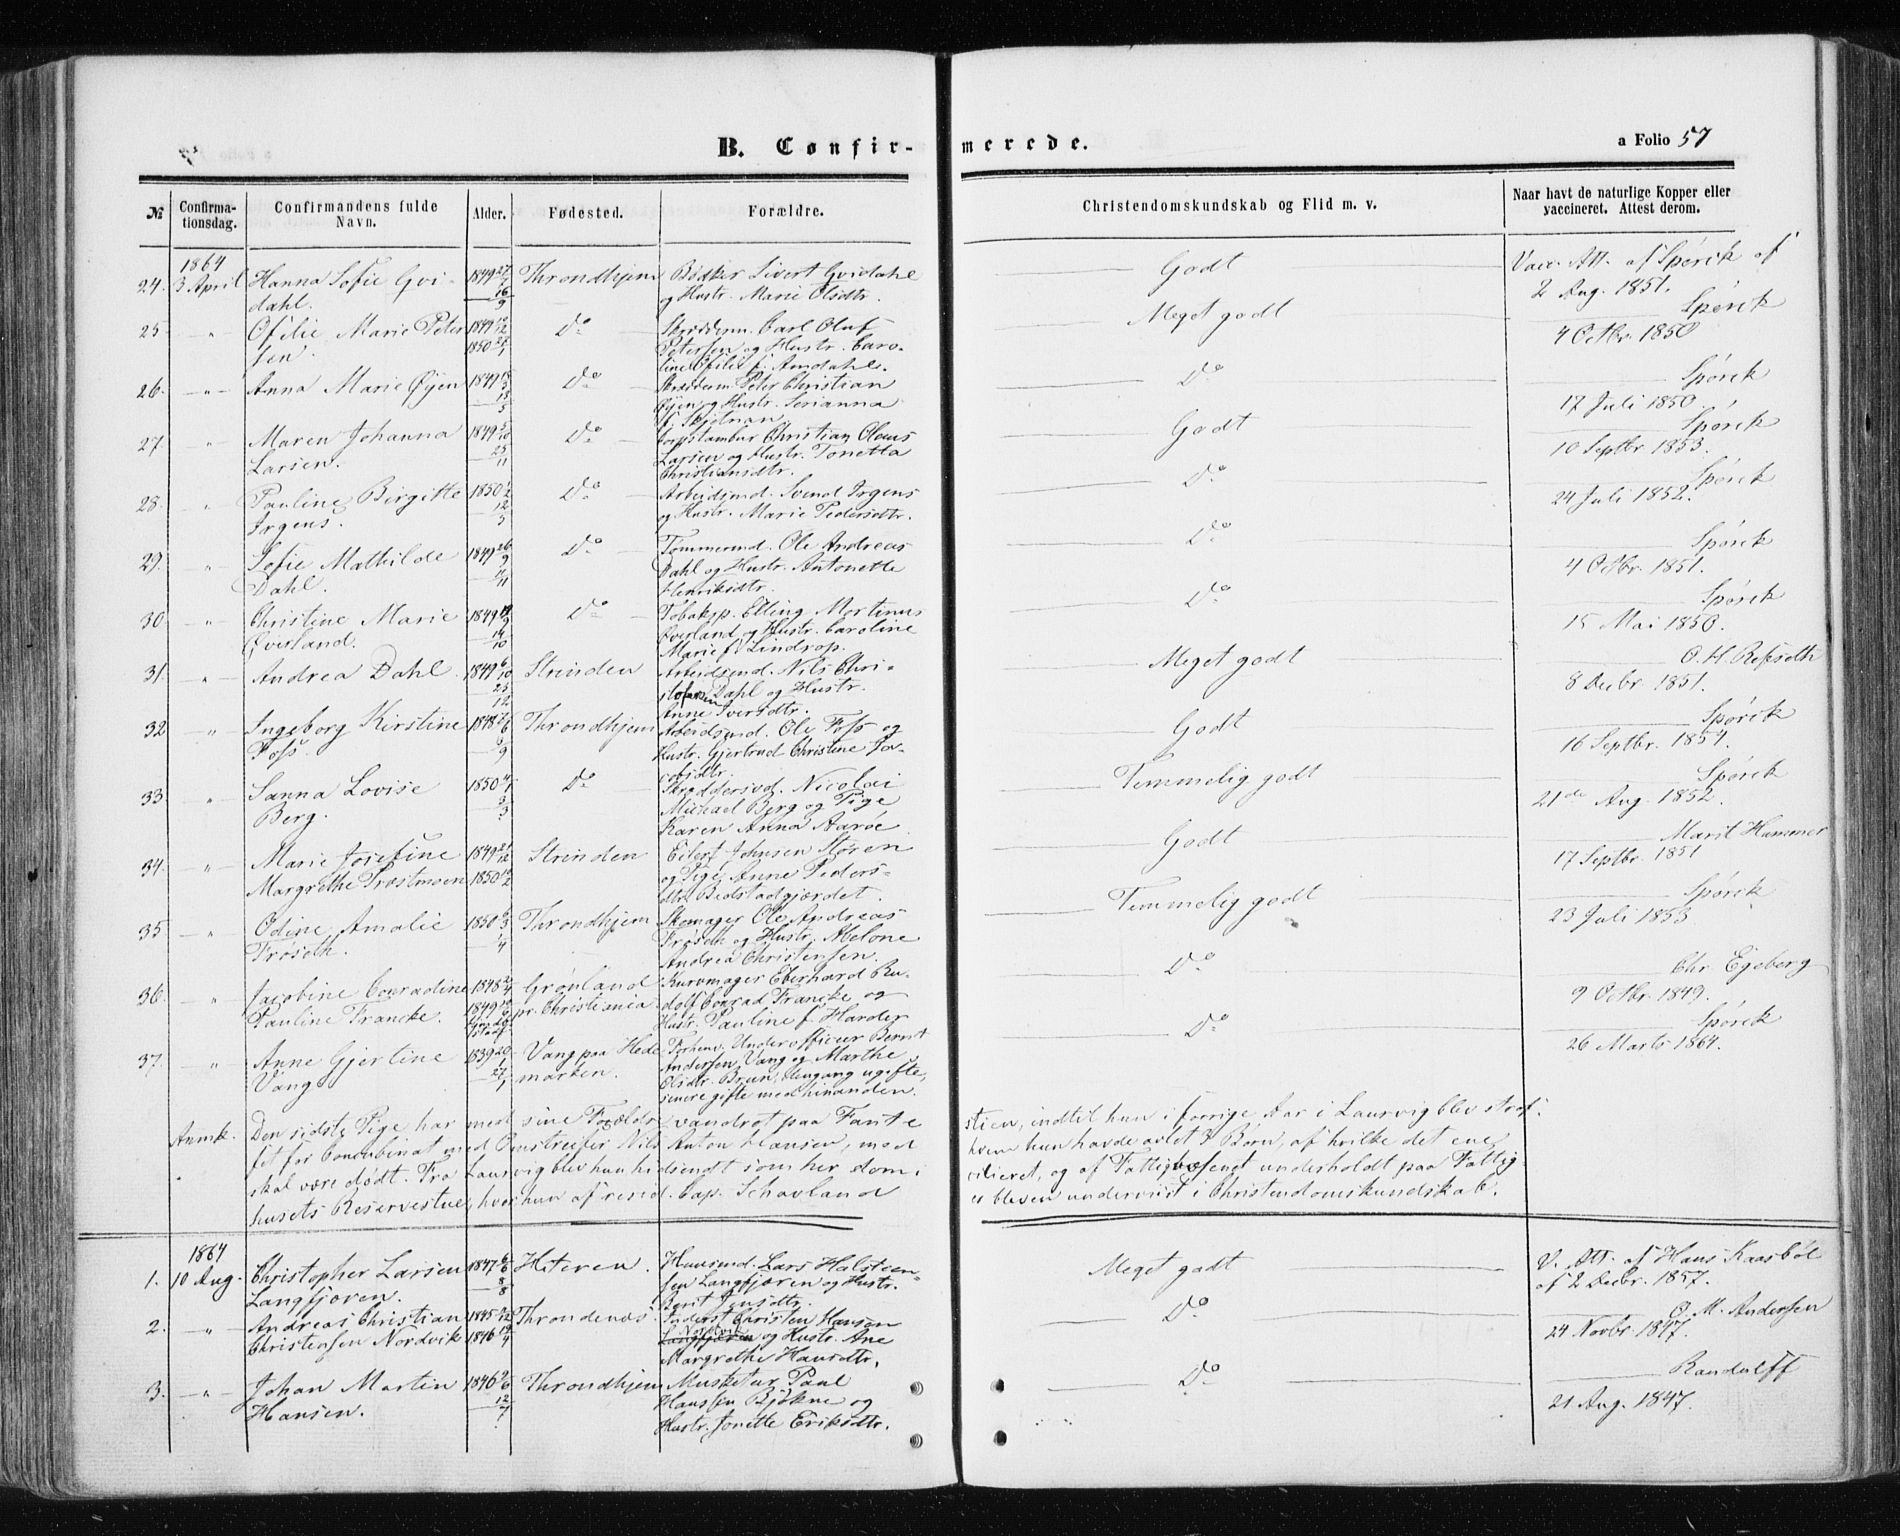 B. Confirmerede.
a Folio 57
№ Confirmationsdag. Confirmandens fulde Navn. Alder. Fødested. Forældre. Christendomskundskab og Flid m. v. Naar havt de naturlige Kopper eller vaccineret. Attest derom.
1864
24. 3 April Hanna Sofie Gvi- 1849 Throndhjem Bødker Sivert Gvidahl Godt Vacc. Att. af Spørck af
dahl. og Hustr. Marie Olsdtr. 2 Aug. 1851.
25 " Ofilie Marie Peter 1849 Do Skrædderm. Carl Oluf Meget godt Spørck
sen. 1850 Petersen og Hustr. Caro- 4 Octbr. 1850
line Ofilie f. Amdahl.
26. " Anna Marie Øyen 1849 Do Skrædderm. Peter Christian Do Spørck
Øyen og Hustr. Serianna 17 Juli 1850.
27. " Maren Johanna 1849 Do Corpstambur Christian Olaus Godt Spørck
Larsen. Larsen og Hustr. Tonetta 10 Septbr. 1853.
Christiansdtr.
28. " Pauline Birgitte 1850 Do Arbeidsmd. Svend Irgens Do Spørck
Irgens. og Hustr. Marie Pedersdtr. 24 Juli 1852.
29. " Sofie Mathilde 1849 Do Tømmermd. Ole Andreas Do Spørck
Dahl. Dahl og Hustr. Antonette 4 Octbr. 1851.
Henriksdtr.
30 " Christine Marie 1849 Do Tobaksp. Elling Martinus Do Spørck
Øverland. Øverland og Hustr. Caroline 15 Mai 1850.
Marie f. Lindrop.
31. " Andrea Dahl. 1849 Strinden Arbeidsmd. Nils Chri- Meget godt O. H. Refseth
stofersen Dahl og Hustr. 8 Decbr. 1851.
Anne Iversdtr.
32 " Ingeborg Kirstine 1848 Throndhjem Arbeidsmd. Ole Foss og Godt Spørck
Foss. Hustr. Gjertrud Christine Ja- 16 Septbr. 1854.
cobsdtr.
33. " Sanna Lovise 1850 Do Skreddersvd. Nicolai Temmelig godt Spørck
Berg. Michael Berg og Pige 21de Aug. 1852.
Karen Anna Aarøe
34. " Marie Josefine 1849 Strinden Eilert Johnsen Støren Godt Marit Hammer
Margrethe Præstmoen 1850 og Pige Anne Peders- 17 Septbr. 1851
dtr. Bedstadgjærdet.
35 " Odine Amalie 1850 Throndhjem Skomager Ole Andreas Temmelig godt Spørck
Frøseth. Frøseth og Hustr. Abelone 23 Juli 1853.
Andrea Christensen.
36. " Jacobine Conradine 1848 Grønland Kurvmager Eberhard Ru- Do Chr. Egeberg
Pauline Francke. 1849 pr. Christiania. dolf Conrad Francke og 9 Octbr. 1849.
Hustr. Pauline f. Harder
37. " Anne Gjertine 1839 Vang paa Hede Forhenv. Underofficeer Bernt Do Spørck
Vang marken. Andersen Vang og Marthe 26 Marts 1864.
Olsdtr. Brun, dengang ugifte,
senere gifte med hinanden.
Anmk. Den sidste Pige har med sine Forældre vandret paa Fante stien, indtil hun i forrige Aar i Laurvig blev straf-
fet for Concubinat med Omstreifer Nils Anton Hansen, med hvem hun havde avlet 3 Børn, af hvilke det ene
skal være dødt. Fra Laurvig blev hun hidsendt som her domi- cilieret, og af Fattigvæsenet underholdt paa Fattig-
husets Reservestue, hvor hun af resid. Cap. Schavland er bleven underviist i Christendomskundskab.
1864
1. 10 Aug. Christopher Larsen 1847 Hiteren. Huusmd. Lars Halstien- Meget godt V. Att. af Hans Kaasbøl
Langfjæren. sen Langfjæren og Hustr. af 2 Decbr. 1857.
Berit Jensdtr.
2. " Andreas Christian 1845 Throndenæs Christen Hansen Do O. M. Andersen
Christensen Nordvik 1846 Nordvik og Hustr. Ane 24 Novbr. 1847.
Margrethe Hansdtr.
3. " Johan Martin 1846 Throndhjem Musketur Paul Do Randulff
Hansen. Hanssen Bjøkne og 21 Aug. 1847.
Hustr. Jonette Eriksdtr.